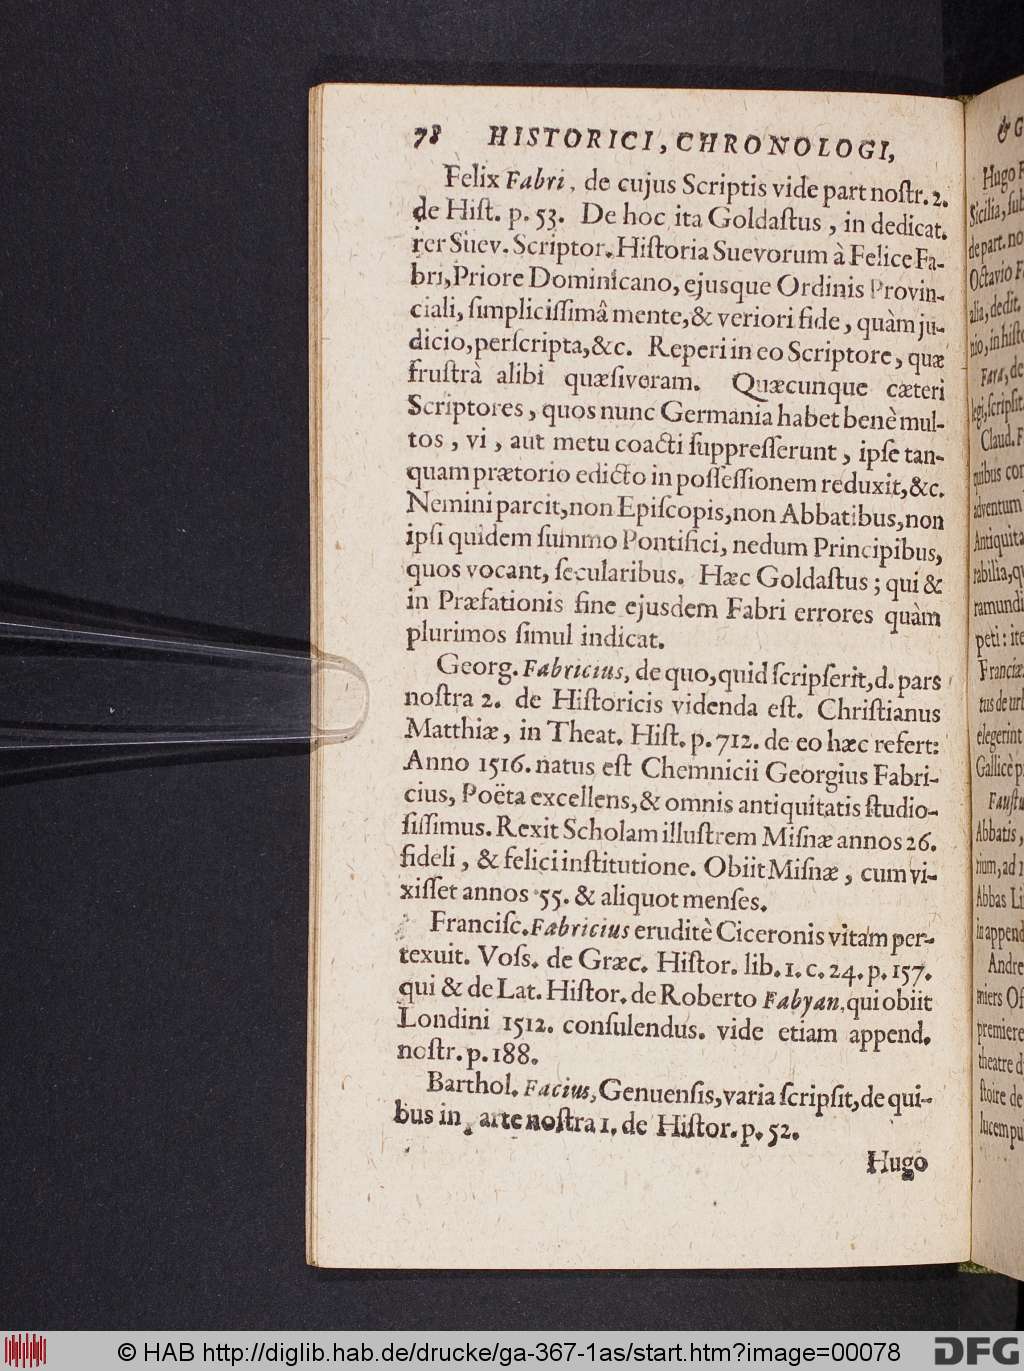 78 HISTORICI, CHRONOLOGI,
Felix Fabri, de cujus Scriptis vide part noſtr. 2.
de Hiſt. p. 53. De hoc ita Goldaſtus, in dedicat.
rer Suev. Scriptor. Hiſtoria Suevorum à Felice Fa-
bri, Priore Dominicano, ejusque Ordinis Provin-
ciali, ſimpliciſſimâ mente, & veriori fide, quàm ju-
dicio, perſcripta, &c. Reperi in eo Scriptore, quæ
fruſtrà alibi quæſiveram. Quæcunque cæteri
Scriptores, quos nunc Germania habet benè mul-
tos, vi, aut metu coacti ſuppreſſerunt, ipſe tan-
quam prætorio edicto in poſſeſſionem reduxit, &c.
Nemini parcit, non Epiſcopis, non Abbatibus, non
ipſi quidem ſummo Pontifici, nedum Principibus,
quos vocant, ſecularibus. Hæc Goldaſtus; qui &
in Præfationis fine ejusdem Fabri errores quàm
plurimos ſimul indicat.
Georg. Fabricius, de quo, quid ſcripſerit, d. pars
noſtra 2. de Hiſtoricis videnda eſt. Chriſtianus
Matthiæ, in Theat. Hiſt. p. 712. de eo hæc refert:
Anno 1516. natus eſt Chemnicii Georgius Fabri-
cius, Poëta excellens, & omnis antiquitatis ſtudio-
ſiſſimus. Rexit Scholam illuſtrem Miſnæ annos 26.
fideli, & felici inſtitutione. Obiit Miſnæ, cum vi-
xiſſet annos 55. & aliquot menſes.
Franciſc. Fabricius eruditè Ciceronis vitam per-
texuit. Voſs. de Græc. Hiſtor. lib. 1. c. 24. p. 157.
qui & de Lat. Hiſtor. de Roberto Fabyan, qui obiit
Londini 1512. conſulendus. vide etiam append.
noſtr. p. 188.
Barthol. Facius, Genuenſis, varia ſcripſit, de qui-
bus in arte noſtra 1. de Hiſtor. p. 52.
Hugo
& G
Hugo F
Sicilia, ſub
de part. no
Octavio F
alia, dedit.
nio, in hiſto
Fara, de
legi, ſcripſit
Claud. F
quibus con
adventum
Antiquita
rabilia, qu
ramundi
peti: ite
Franciæ
tus de urb
elegerint
Gallicè p
Fauſtu
Abbatis,
rium, ad 1
Abbas Li
in append
Andre
miers Of
premiere
theatre d
ſtoire de
lucem pu
© HAB http://diglib.hab.de/drucke/ga-367-1as/start.htm?image=00078
DFG